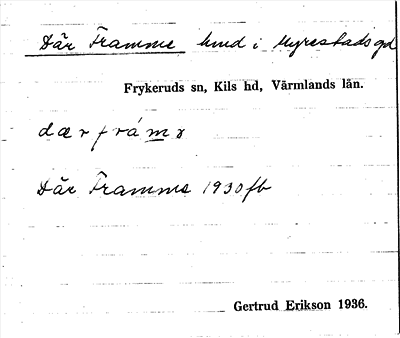 Där Framme hmd i Myrestads gd
Frykeruds sn, Kils hd, Värmlands län.
dærfrámɤ
Där Framme 1930 fb
Gertrud Erikson 1936.